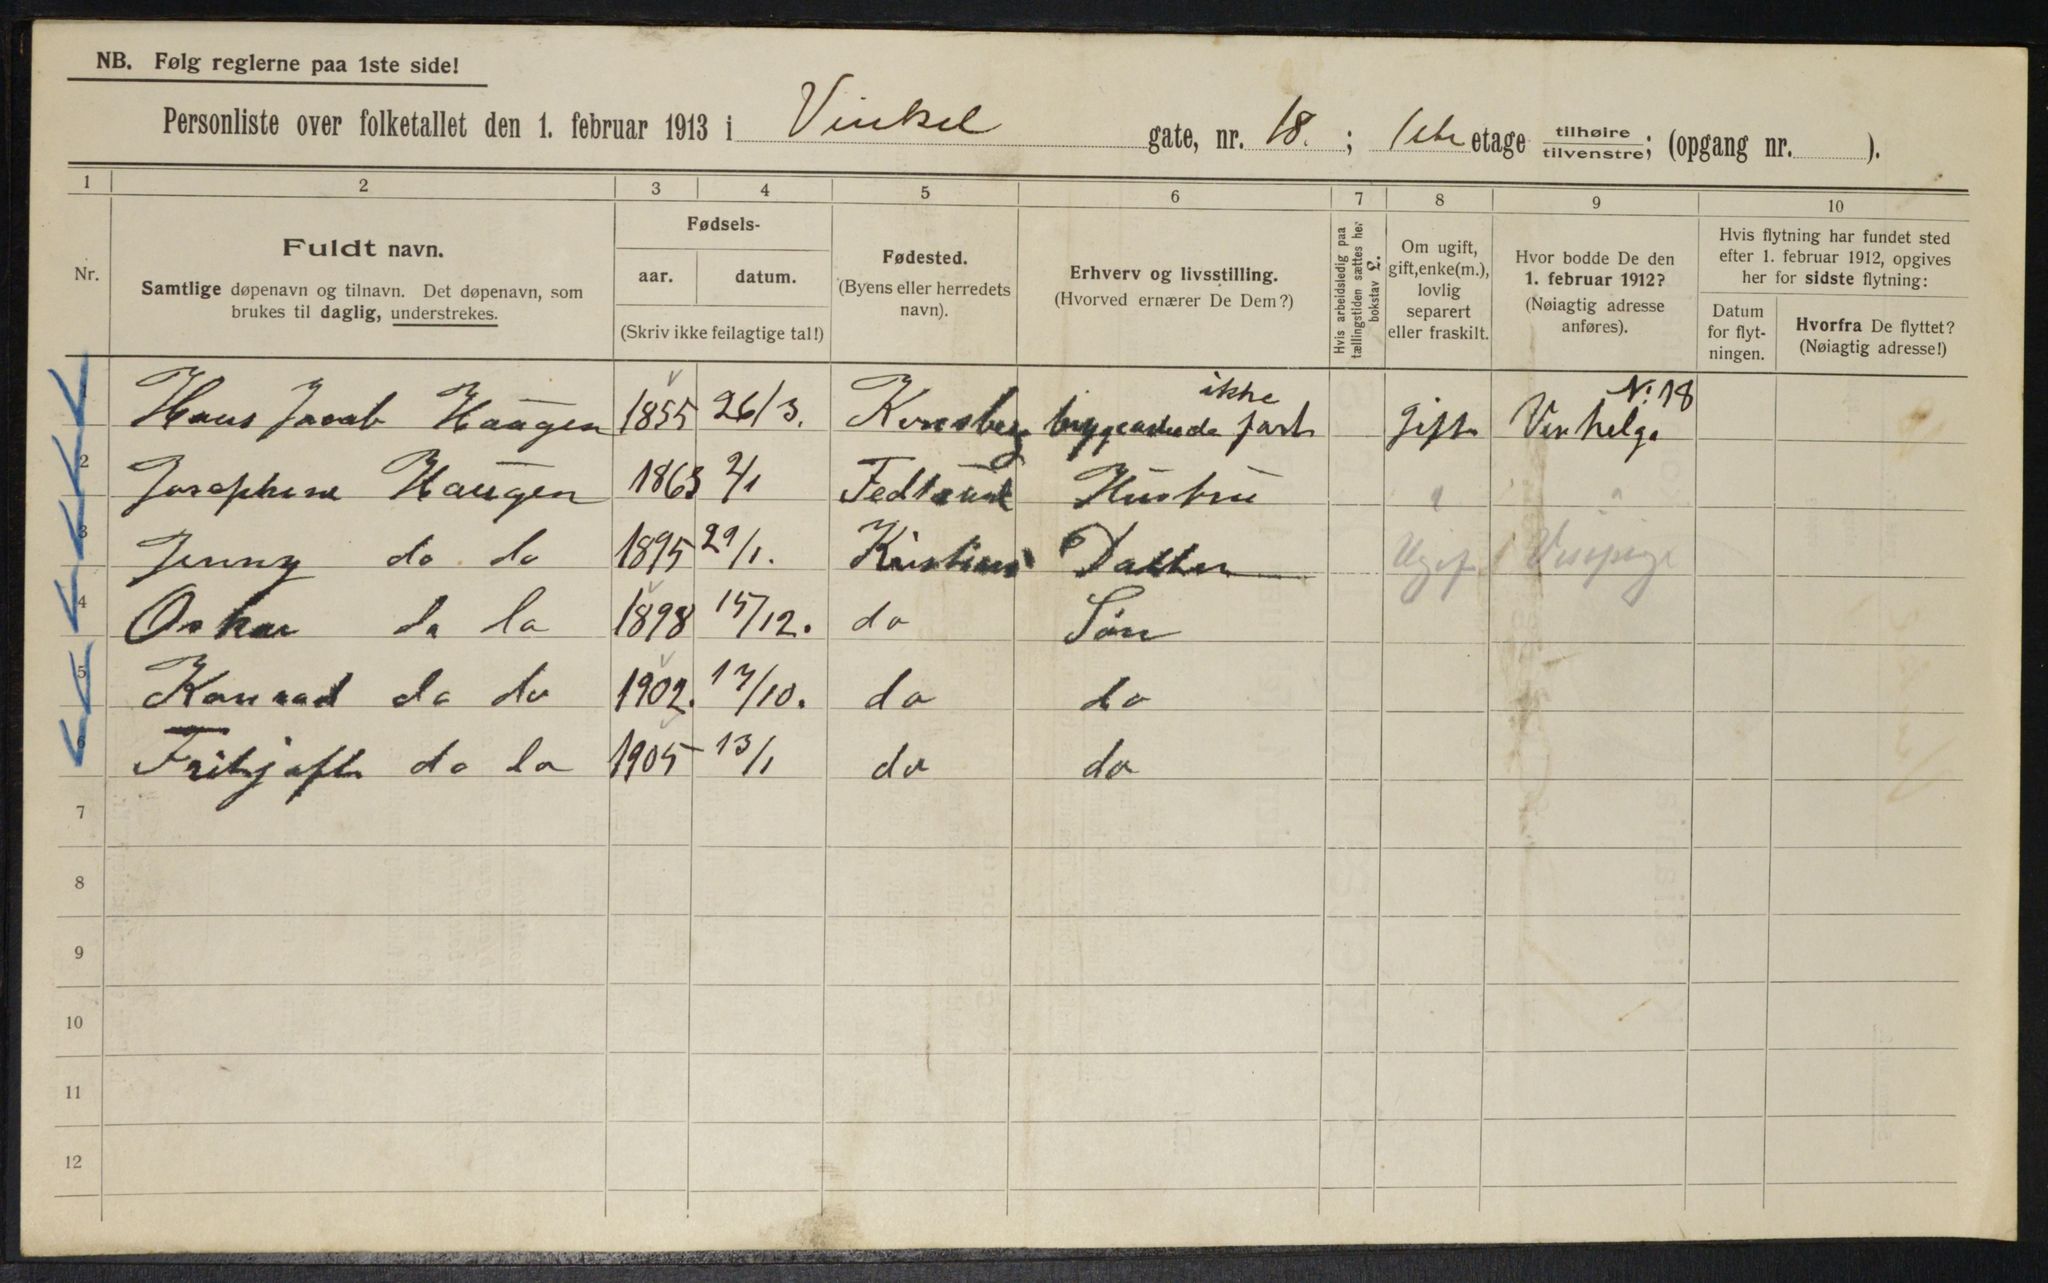 NB. Følg reglerne paa 1ste side!
Personliste over folketallet den 1. februar 1913 i Vinkel gate, nr. 18. ; 1ste etage tilhøire tilvenstre; (opgang nr. ).
1 2 3 4 5 6 7 8 9 10
Nr.
Fuldt navn.
Samtlige døpenavn og tilnavn. Det døpenavn, som
brukes til daglig, understrekes.
Fødsels-
aar. datum.
(Skriv ikke feilagtige tal!)
Fødested.
(Byens eller herredets
navn).
Erhverv og livsstilling.
(Hvorved ernærer De Dem?)
Hvis arbeidsledig paa
tællingstiden sættes her
bokstav L.
Om ugift,
gift, enke(m.),
lovlig
separert
eller fraskilt.
Hvor bodde De den
1. februar 1912?
(Nøiagtig adresse
anføres).
Hvis flytning har fundet sted
efter 1. februar 1912, opgives
her for sidste flytning:
Datum
for flyt-
ningen.
Hvorfra De flyttet?
(Nøiagtig adresse!)
ikke N: 18
Hans Jacob Haugen 1855 26/3. Konsberg fast gift Vinkelg.
2 Josephine Haugen 1863 2/1 Hustru " "
3 Jenny do do 1895 29/1. Kristiania Datter Ugift
4 Oskar do do 1898 15/12. do Søn
5 Konrad do do 1902. 17/10. do do
6 Frithjoft do do 1905 13/1 do do
7
8
9
10
11
12